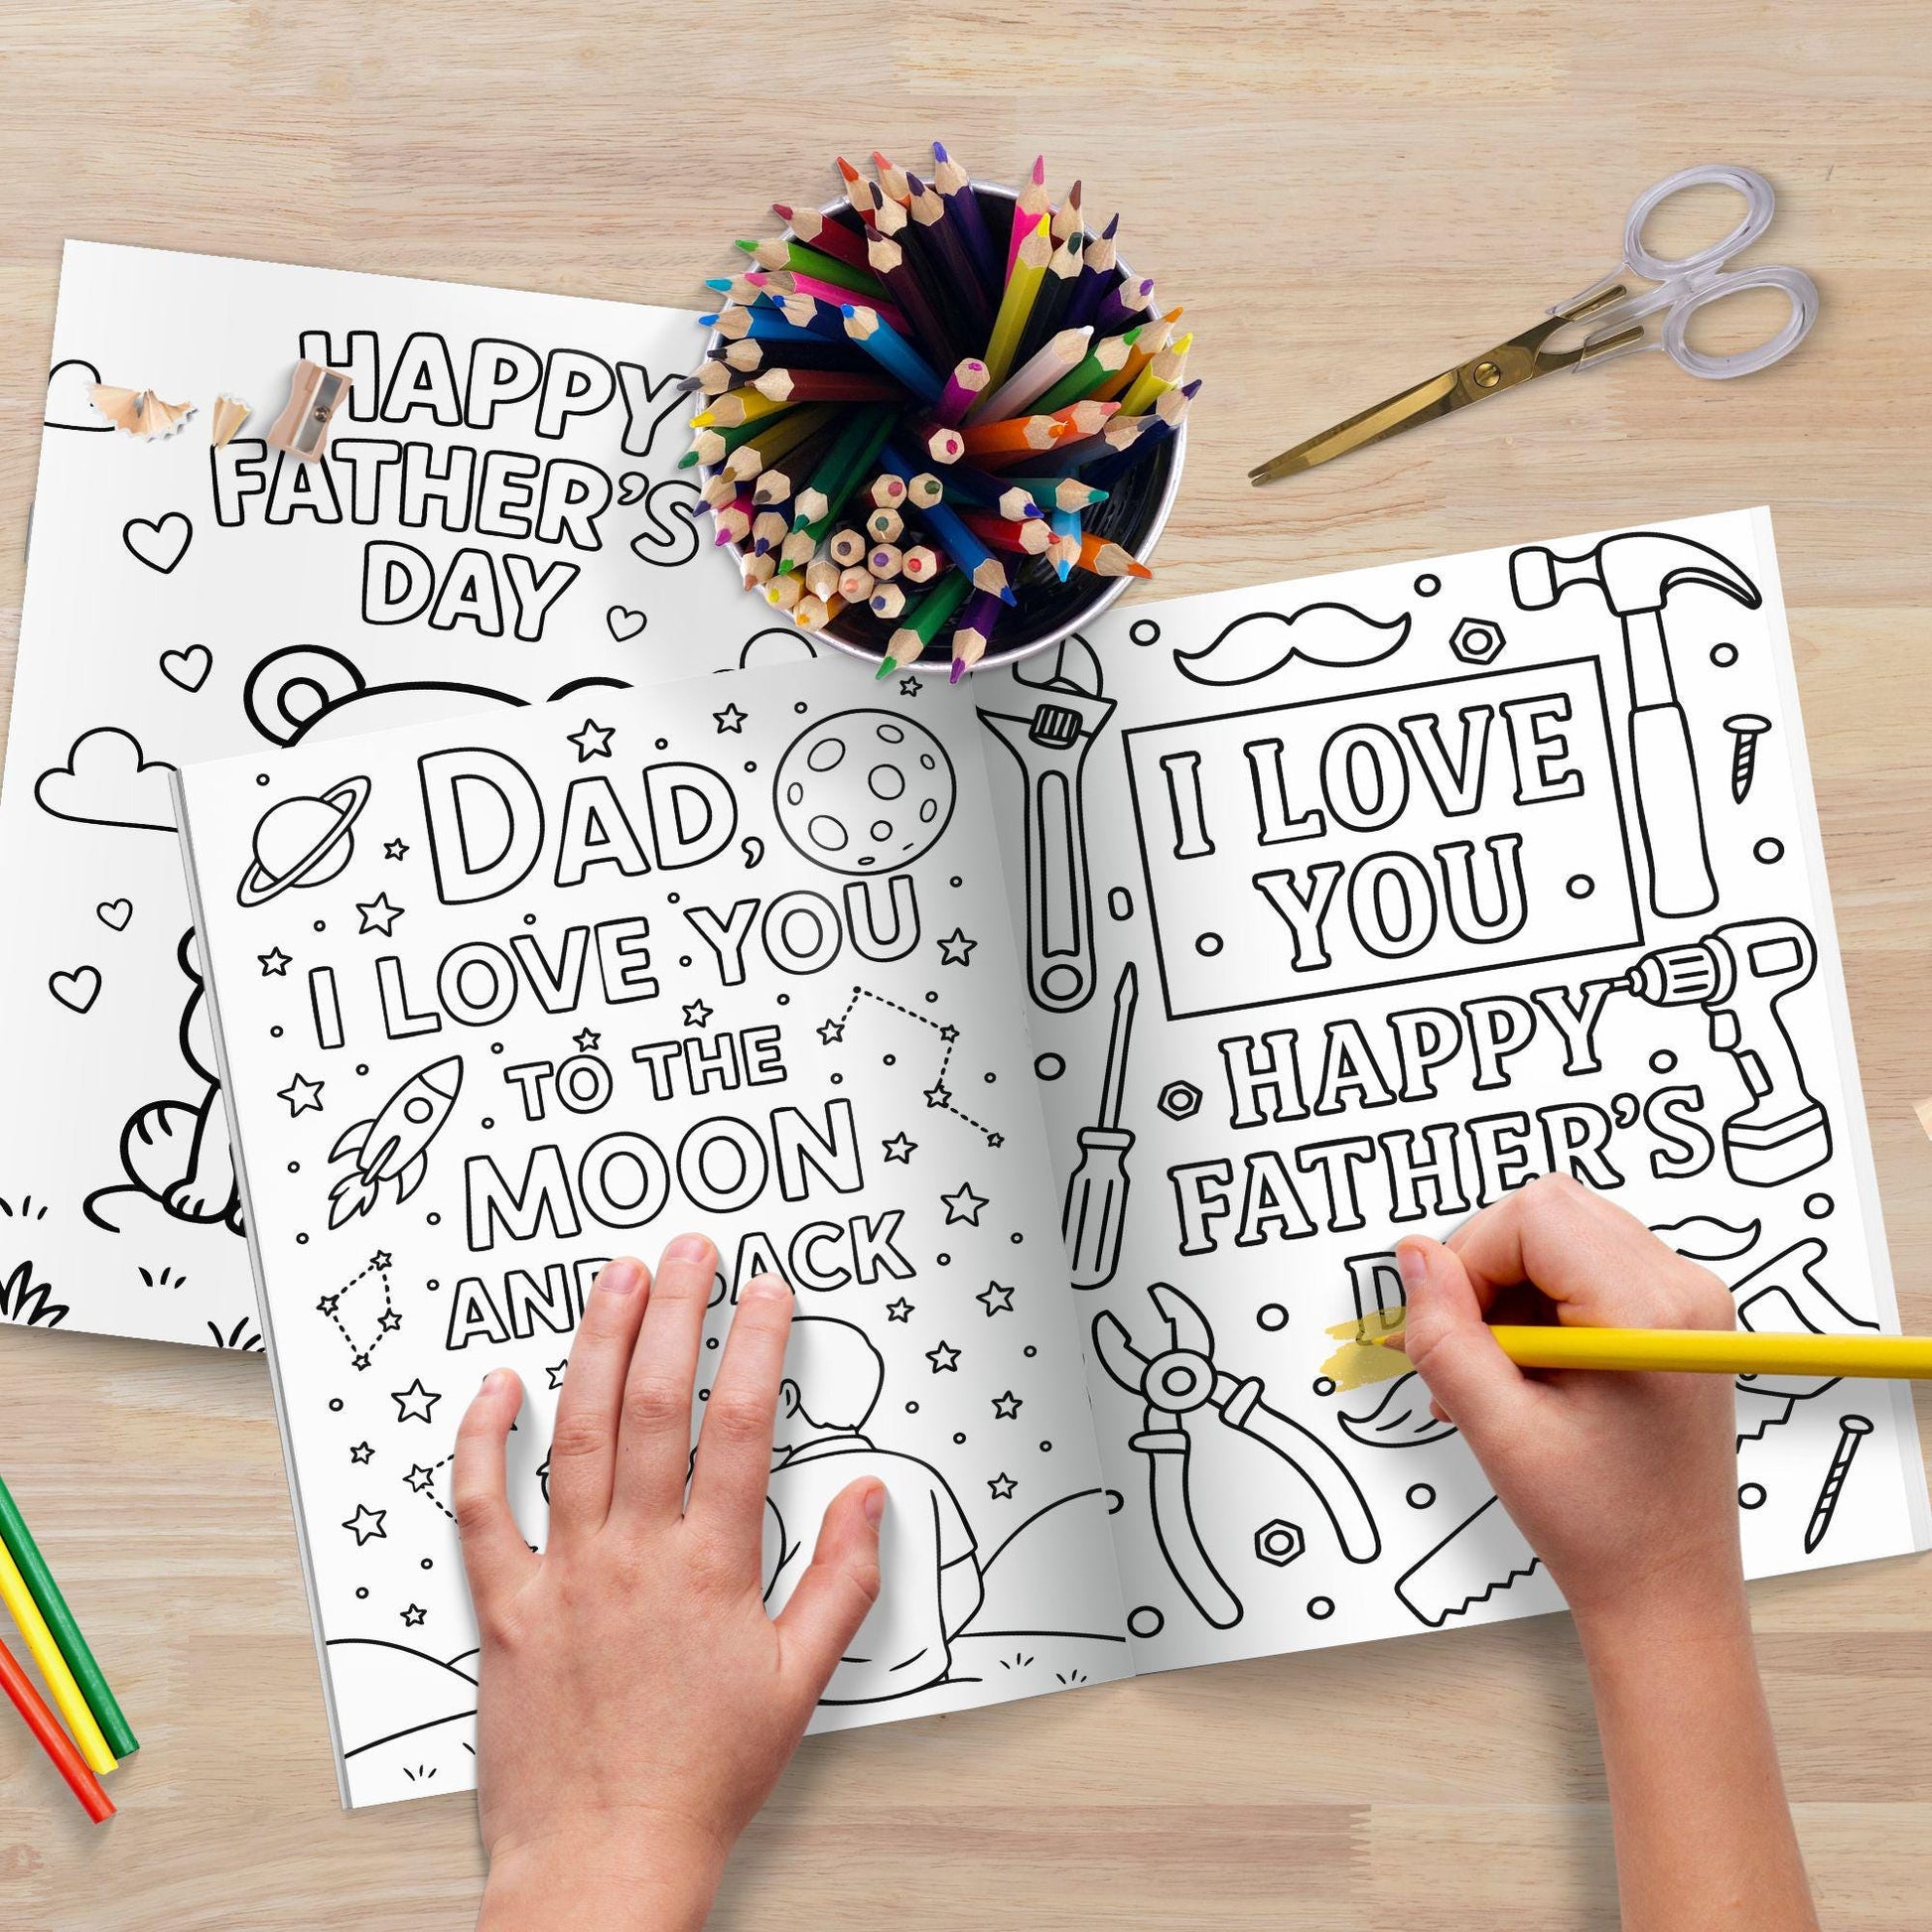 HAPPY
FATHER'S
DAY
DAD,
I LOVE YOU
TO THE
MOON
AND BACK
I LOVE
YOU
HAPPY
FATHER'S